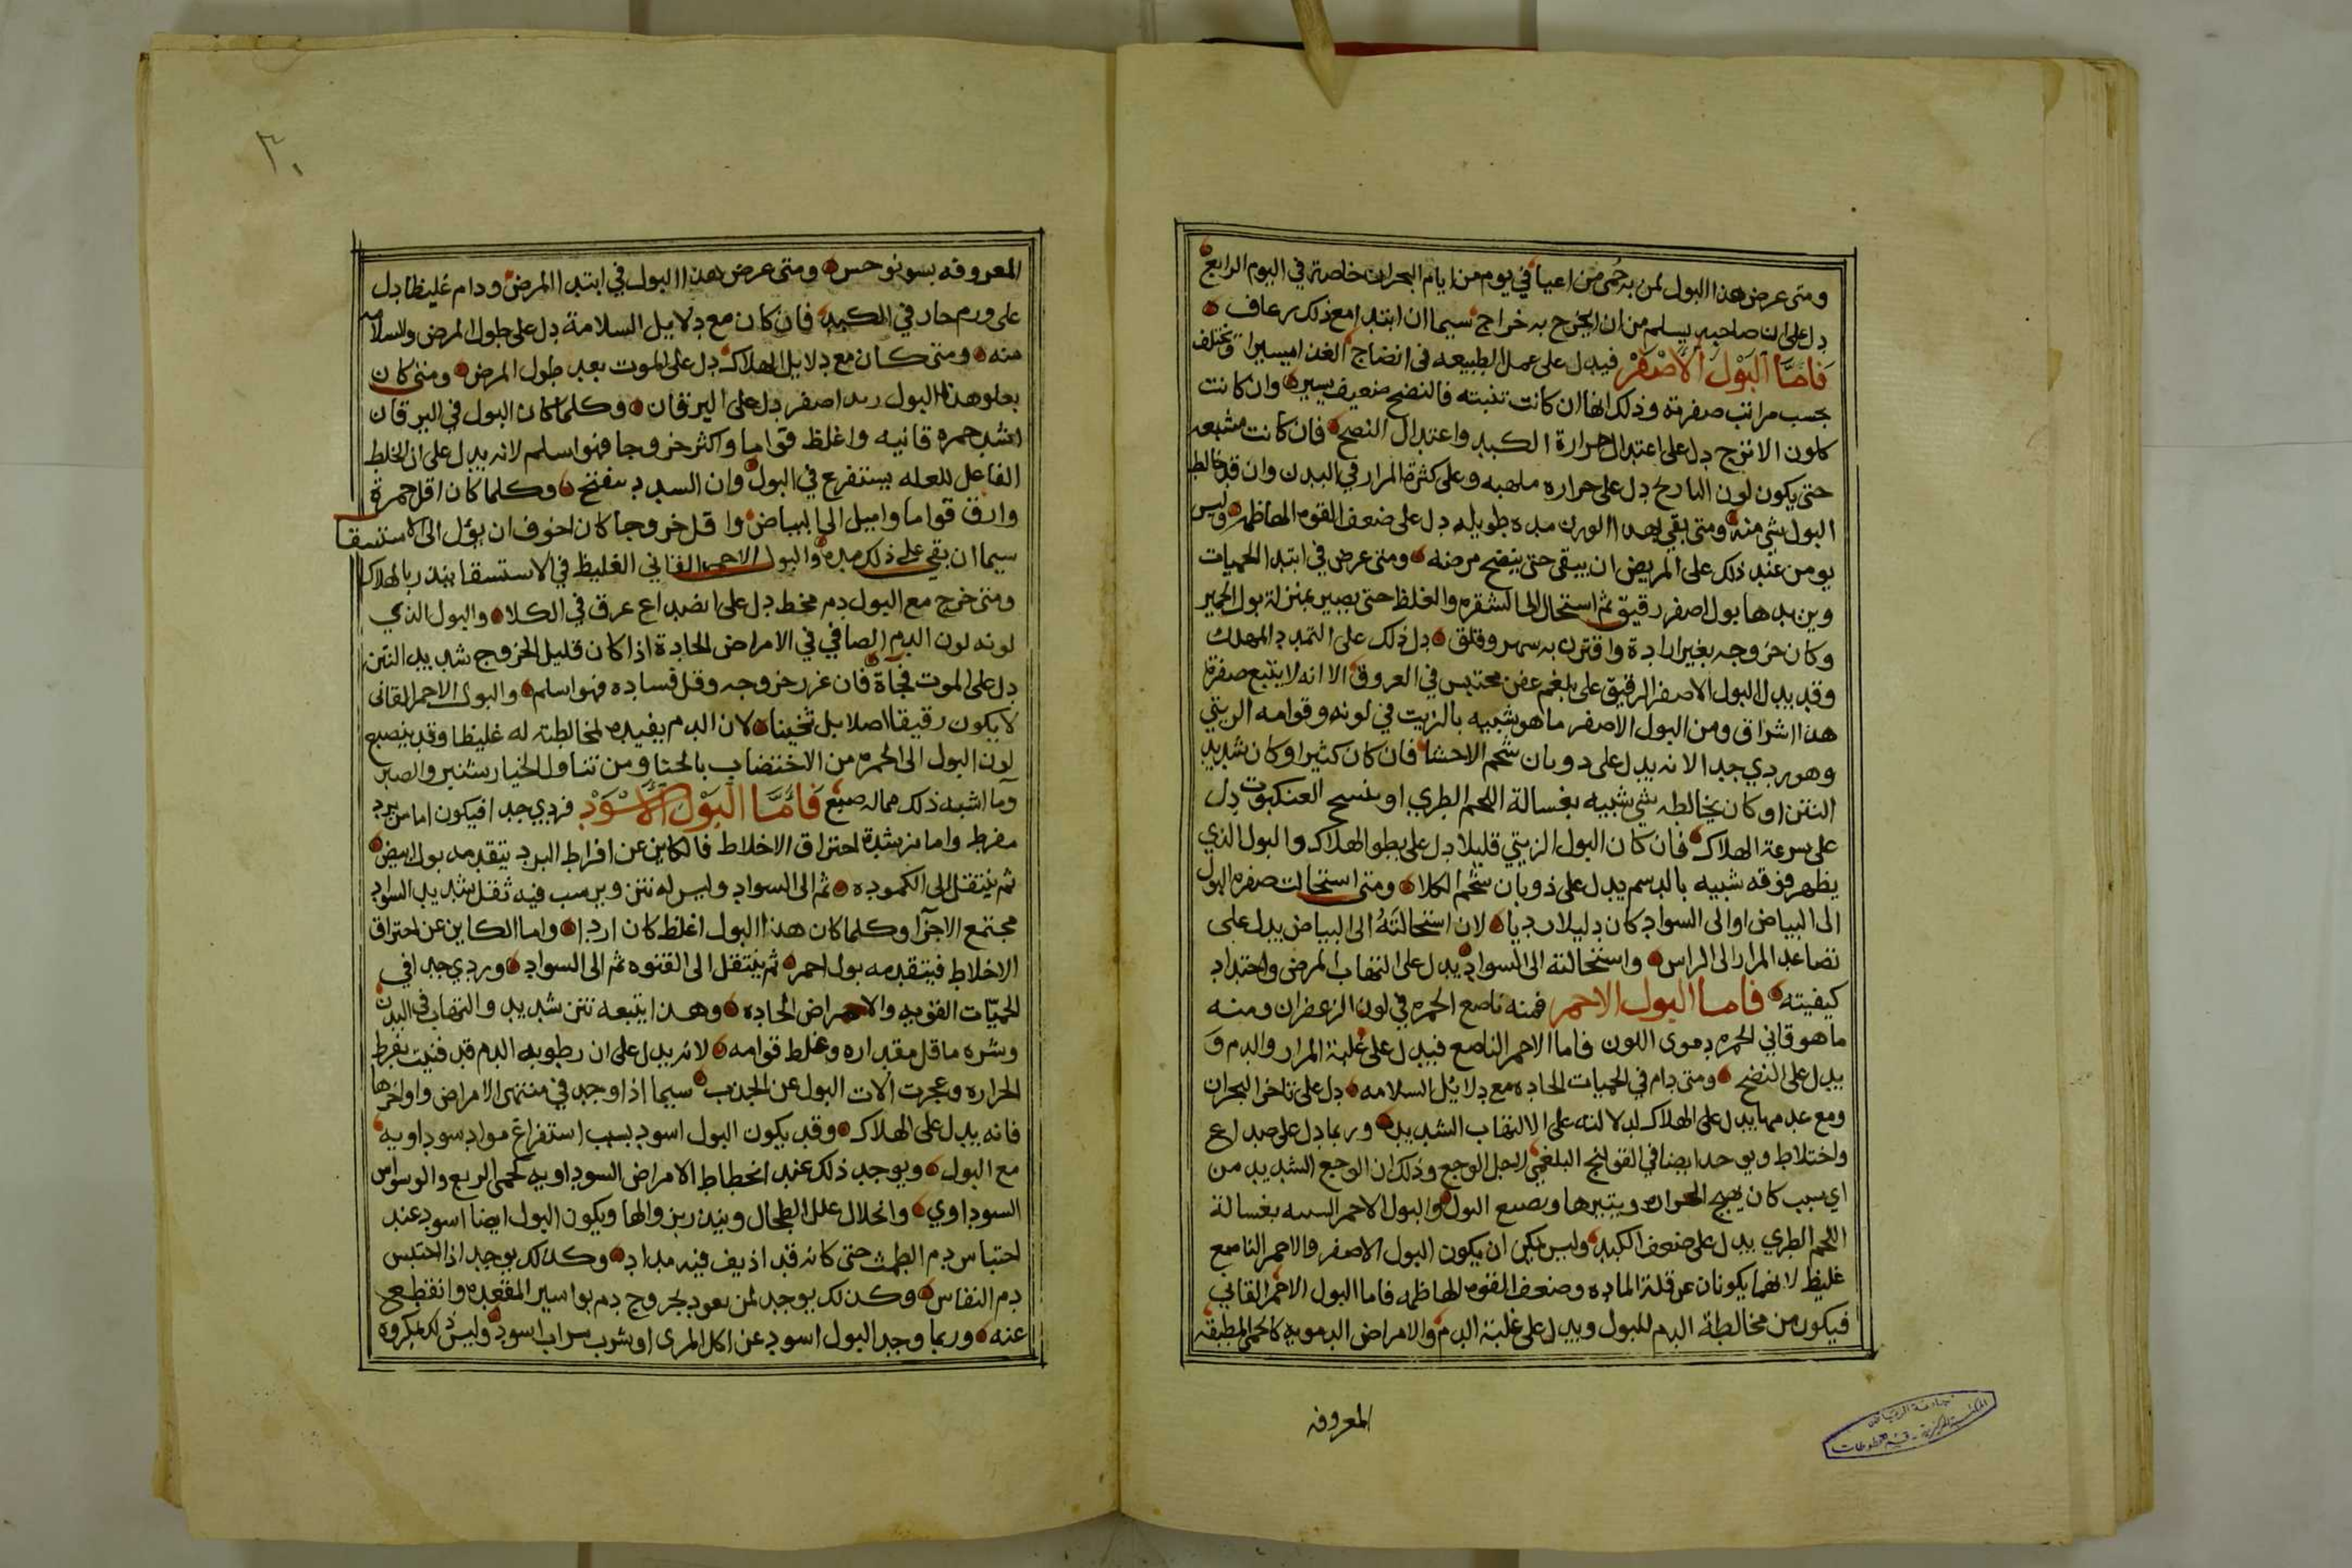 ومتى عرض هذا البول لمن به حمى من اعيا في يوم من ايام البحران خاصة في اليوم الرابع
دل على ان صاحبه يسلم من ان يخرج به خراج سيما ان ابتدا مع ذلك رعاف
فاما البول الاصفر فيدل على عمل الطبيعه في انضاج الغذا يسيرا وتختلف
بحسب مراتب صفرته وذلك انها ان كانت تبنيه فالنضح ضعيف يسير وان كانت
كلون الاترج دل على اعتدال حرارة الكبد واعتدال النضح فان كانت مشبعه
حتى يكون لون النارنج دل على حراره ملهبه وعلى كثرة المرار في البدن وان قد خالط
البول شي منه ومتى بقي بهدا اللون مده طويله دل على ضعف القوه الهاظمه وليس
يومن عند ذلك على المريض ان يبقى حتى ينضح مرضه ومتى عرض في ابتدا الحميات
وتزيدها بول اصفر رقيق ثم استحال الى الشقره والغلظ حتى يصير بمنزلة بول الحمير
وكان خروجه بغير ارادة واقترن به سهر وقلق دل ذلك على التمدد المهلك
وقد يدل البول الاصفر الرقيق على بلغم عفن محتبس في العروق الا انه لا يتبع صفرة
هذا اشراق ومن البول الاصفر ما هو شبيه بالزيت في لونه وقوامه الزيتي
وهو ردي جدا لانه يدل على دوبان شحم الاحشا فان كان كثيرا وكان شديد
النتن او كان يخالطه شي شبيه بغسالة اللحم الطري او بنسج العنكبوت دل
على سرعة الهلاك فان كان البول الزيتي قليلا دل على بطو الهلاك والبول الذي
يظهر فوقه شبيه بالدسم يدل على ذوبان شحم الكلا ومتى استحالت صفره البول
الى البياض او الى السواد كان دليلا رديا لان استحالته الى البياض يدل على
تصاعد المرار الى الراس واستحالته الى السواد يدل على التهاب المرض واحتداد
كيفيته فاما البول الاحمر فمنه ناصع الحمره في لون الزعفران ومنه
ما هو قاني الحمره دموي اللون فاما الاحمر الناصع فيدل على غلبة المرار والدم و
يدل على النضح ومتى دام في الحميات الحاده مع دلائل السلامه دل على تاخر البحران
ومع عدمها يدل على الهلاك لدلالته على الالتهاب الشديد وربما دل على صداع
واختلاط ويوجد ايضا في القولنج البلغمي لاجل الوجع وذلك ان الوجع الشديد من
اي سبب كان يهيج الحراره ويثيرها ويصبغ البول والبول الاحمر الشبيه بغسالة
اللحم الطري يدل على ضعف الكبد وليس يمكن ان يكون البول الاصفر والاحمر الناصع
غليظ لانهما يكونان عن قلة الماده وضعف القوه الهاظمه فاما البول الاحمر القاني
فيكون من مخالطة الدم للبول ويدل على غلبة الدم والامراض الدمويه كالحمى المطبقه
المعروفه
٣٠
المعروفه بسونوخس ومتى عرض هذا البول في ابتدا المرض ودام غليظا دل
على ورم حار في الكبد فان كان مع دلايل السلامة دل على طول المرض والسلامه
منه ومتى كان مع دلايل الهلاك دل على الموت بعد طول المرض ومتى كان
يعلو هذا البول زبد اصفر دل على اليرقان وكلما كان البول في اليرقان
اشد حمره قانيه واغلظ قواما واكثر خروجا فهو اسلم لانه يدل على ان الخلط
الفاعل للعله يستفرغ في البول وان السدد تتفتح وكلما كان اقل حمرة
وارق قواما واميل الى البياض واقل خروجا كان اخوف ان يؤل الى الاستسقا
سيما ان بقي على ذلك مده والبول الاحمر القاني الغليظ في الاستسقا ينذر بالهلاك
ومتى خرج مع البول دم مخط دل على انصداع عرق في الكلا والبول الذي
لونه لون الدم الصافي في الامراض الحادة اذا كان قليل الخروج شديد النتن
دل على الموت فجآة فان غزر خروجه وقل فساده فهو اسلم والبول الاحمر القاني
لا يكون رقيقا اصلا بل ثخينا لان الدم يفيده لمخالطته له غلظا وقد ينصبع
لون البول الى الحمره من الاختضاب بالحنا ومن تناول الخيارشنبر والصبر
وما اشبه ذلك مما له صبغ فاما البول الاسود فردي جدا فيكون اما من برد
مفرط واما من شدة احتراق الاخلاط فالكاين عن افراط البرد يتقدمه بول ابيض
ثم ينتقل الى الكموده ثم الى السواد وليس له نتن ويرسب فيه ثقل شديد السواد
مجتمع الاجزآ وكلما كان هذا البول اغلظ كان اردا واما الكاين عن احتراق
الاخلاط فيتقدمه بول احمر ثم ينتقل الى القنوه ثم الى السواد وردي جدا في
الحميات القويه والامراض الحاده وهذا يتبعه نتن شديد والتهاب في البدن
وشره ما قل مقداره وغلط قوامه لانه يدل على ان رطوبه الدم قد فنيت بفرط
الحراره وعجزت الات البول عن الجذب سيما اذا وجد في منتهى الامراض واواخرها
فانه يدل على الهلاك وقد يكون البول اسود بسبب استفراغ مواد سوداويه
مع البول ويوجد ذلك عند انحطاط الامراض السوداويه كحمى الربع والوسواس
السوداوي وانحلال علل الطحال وينذر بزوالها ويكون البول ايضا اسود عند
احتباس دم الطمث حتى كانه قد اذيف فيه مداد وكذلك يوجد اذا احتبس
دم النفاس وكذلك يوجد لمن يعود بخروج دم بواسير المقعده وانقطع
عنه وربما وجد البول اسود عن اكل المرى او شرب شراب اسود وليس ذلك بمكروه
جامعة الرياض
المكتبة المركزية - قسم المخطوطات